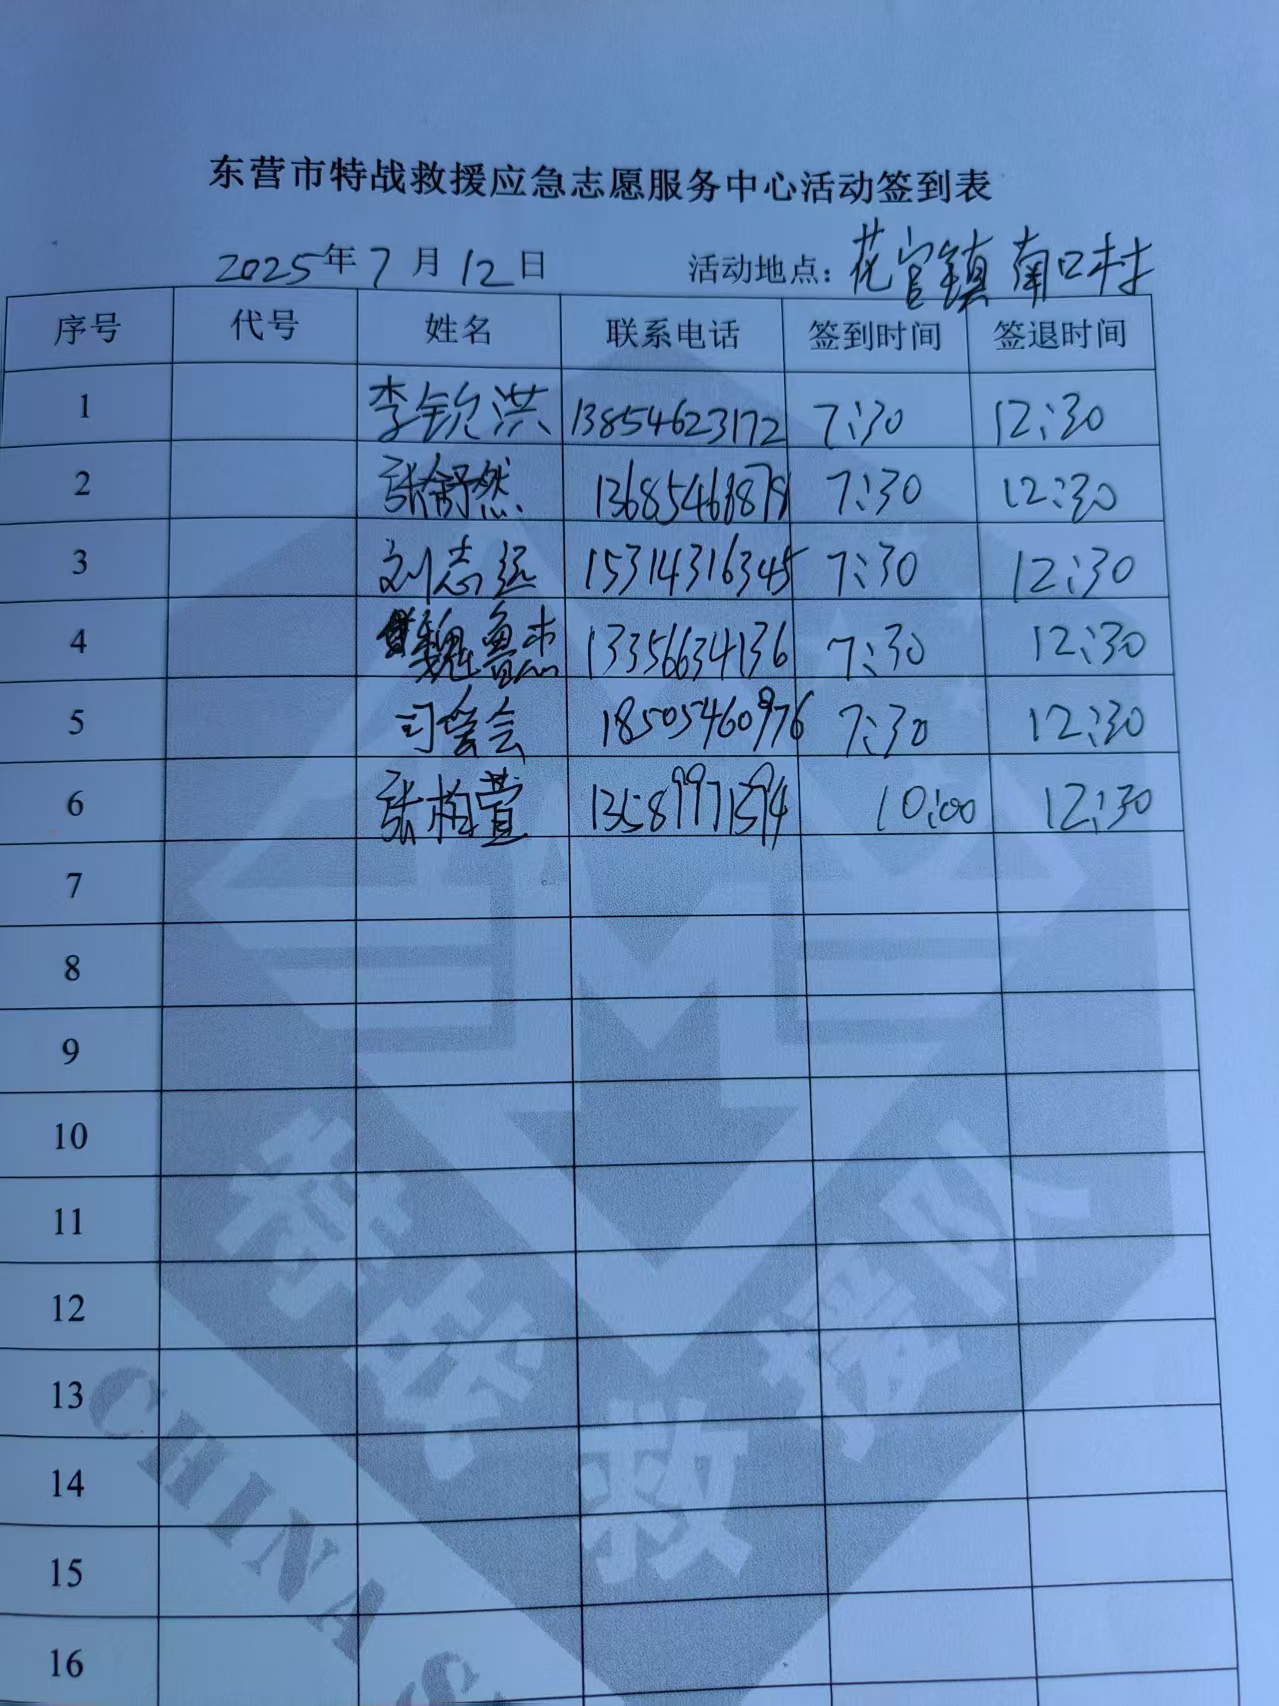 东营市特战救援应急志愿服务中心活动签到表
2025年7月12日 活动地点：花官镇南口村
序号 代号 姓名 联系电话 签到时间 签退时间
1 李钦洪 13854623172 7:30 12:30
2 张舒然 7:30 12:30
3 刘志远 15314316345 7:30 12:30
4 魏鲁杰 13356634136 7:30 12:30
5 司爱会 18505460976 7:30 12:30
6 张柏萱 13589971594 10:00 12:30
7
8
9
10
11
12
13
14
15
16
特战救援队
CHINA S